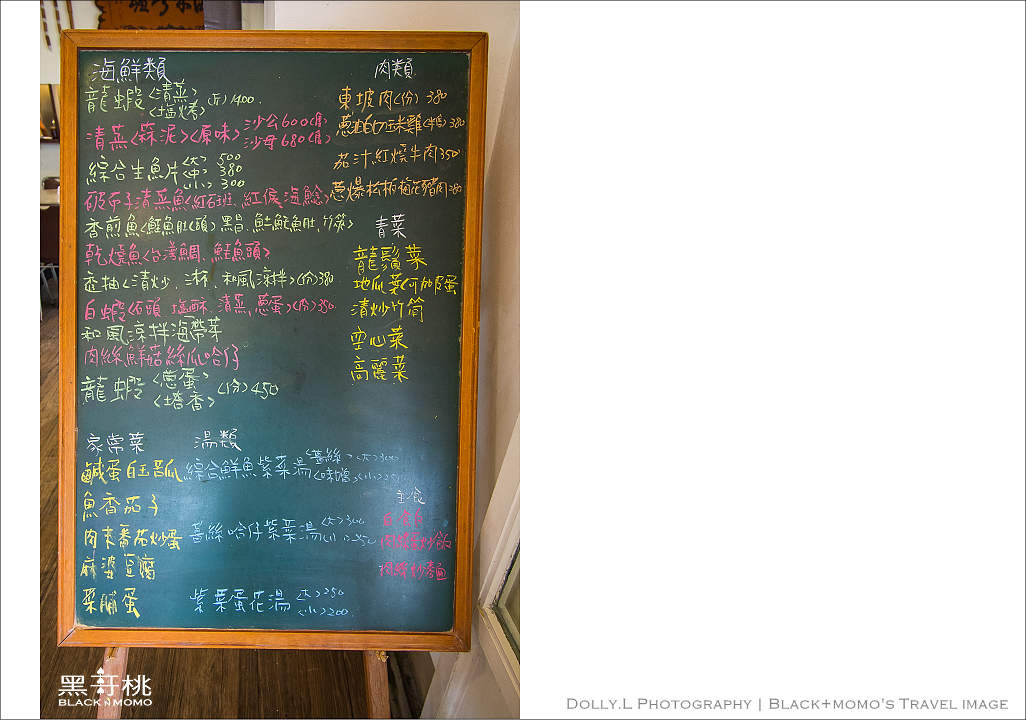 海鮮類
龍蝦<清蒸><塩烤>(斤)1400.
清蒸<蒜泥><原味>沙公600(隻)沙母680(隻)
綜合生魚片<大>500<中>380<小>300
破布子清蒸魚<紅石斑、紅條、海鱺>
香煎魚<鮭魚肚(頭)
乾燒魚<台灣鯛、鮭魚頭>
透抽<清炒、三杯、和風涼拌>(份)380
白蝦<石頭、塩酥、清蒸、蔥蛋>(份)350
和風涼拌海帶芽
肉絲鮮菇絲瓜哈仔
龍蝦<蔥蛋><塔香>(1份)450
肉類
東坡肉(份)380
雞(半隻)380
茄汁紅燒牛肉350
蔥爆松板梅花豬肉280
青菜
龍鬚菜
地瓜葉(可加皮蛋
清炒竹筒
空心菜
高麗菜
家常菜
鹹蛋白玉苦瓜
魚香茄子
肉末番茄炒蛋
麻婆豆腐
菜脯蛋
湯類
綜合鮮魚紫菜湯<薑絲><味噌><大>300<小>250
薑絲哈仔紫菜湯<大>300<小>250
紫菜蛋花湯<大>250<小>200
主食
白飯
炒飯
肉絲炒麵
黑荳桃
BLACK MOMO
DOLLY.L PHOTOGRAPHY | BLACK+MOMO'S TRAVEL IMAGE